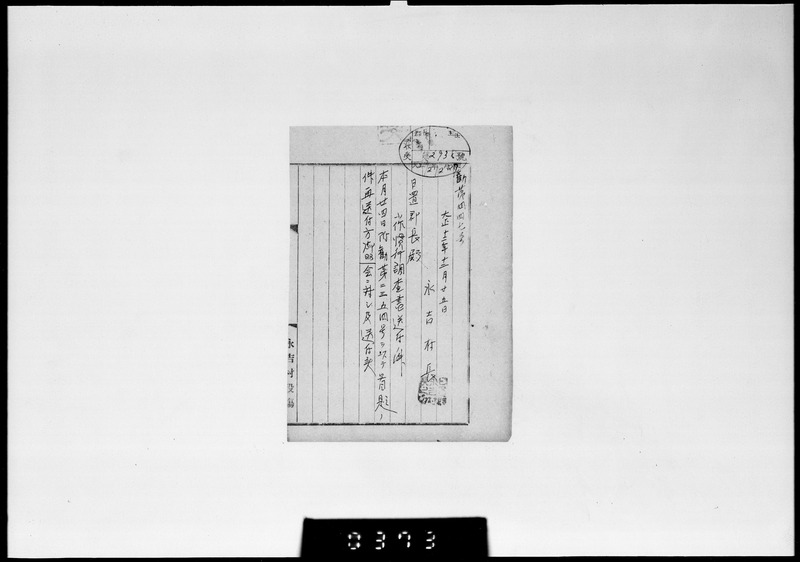 勧第四四七号
大正十二年十二月廿五日
永吉村長
日置郡長殿
小作慣行調査書送付ノ件
本月廿四日附勧第二三五四号ヲ以テ首題ノ
件再送付方御照会ニ対シ及送付候
永吉村役場
0373